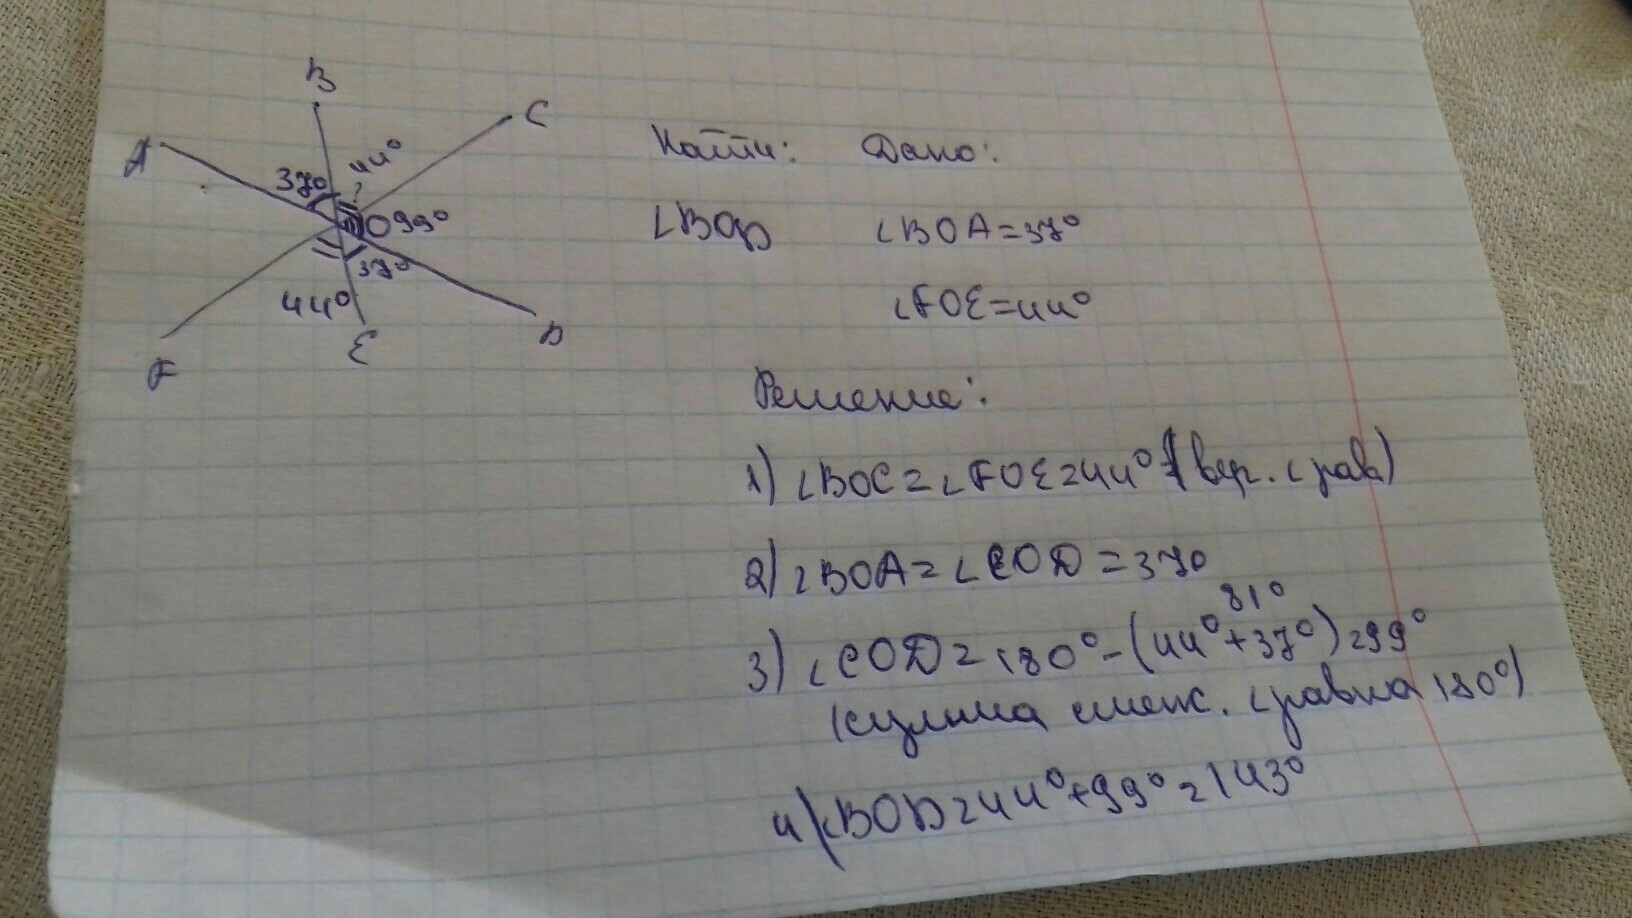 B
C
A
37° 44°
?
O 99°
37°
44°
D
E
F
Найти: Дано:
∠BOD ∠BOA=37°
∠FOE=44°
Решение:
1) ∠BOC=∠FOE=44° (вер. ∠ рав)
2) ∠BOA=∠EOD=37°
81°
3) ∠COD=180°-(44°+37°)=99°
(сумма смеж. ∠ равна 180°)
4) ∠BOD=44°+99°=143°